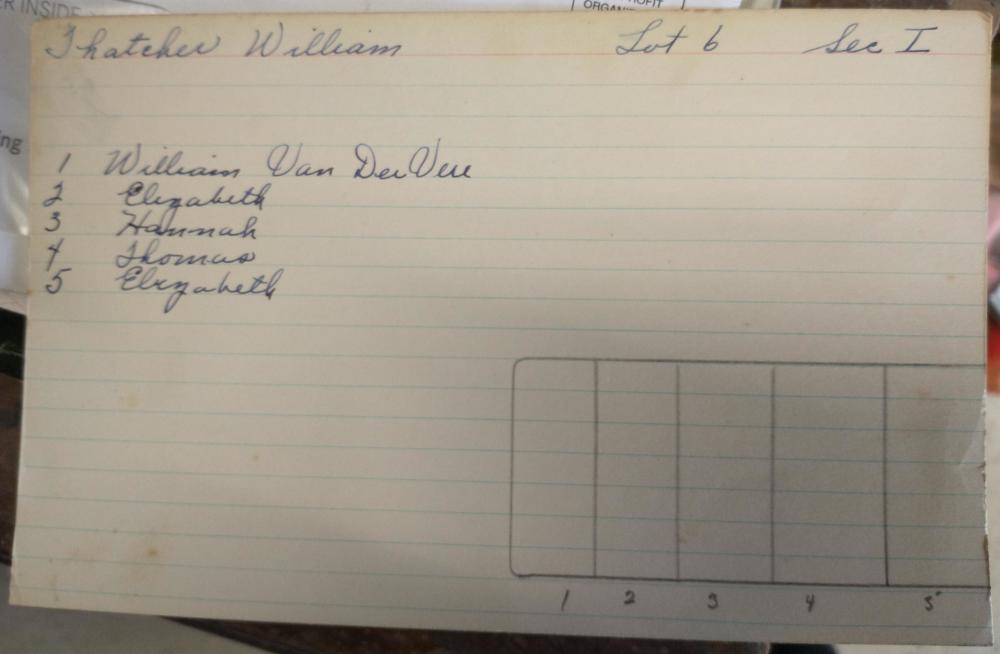 ER INSIDE
ORGAN
ng
Thatcher William Lot 6 Sec I
1 William Van Der Vere
2 Elizabeth
3 Hannah
4 Thomas
5 Elizabeth
1 2 3 4 5